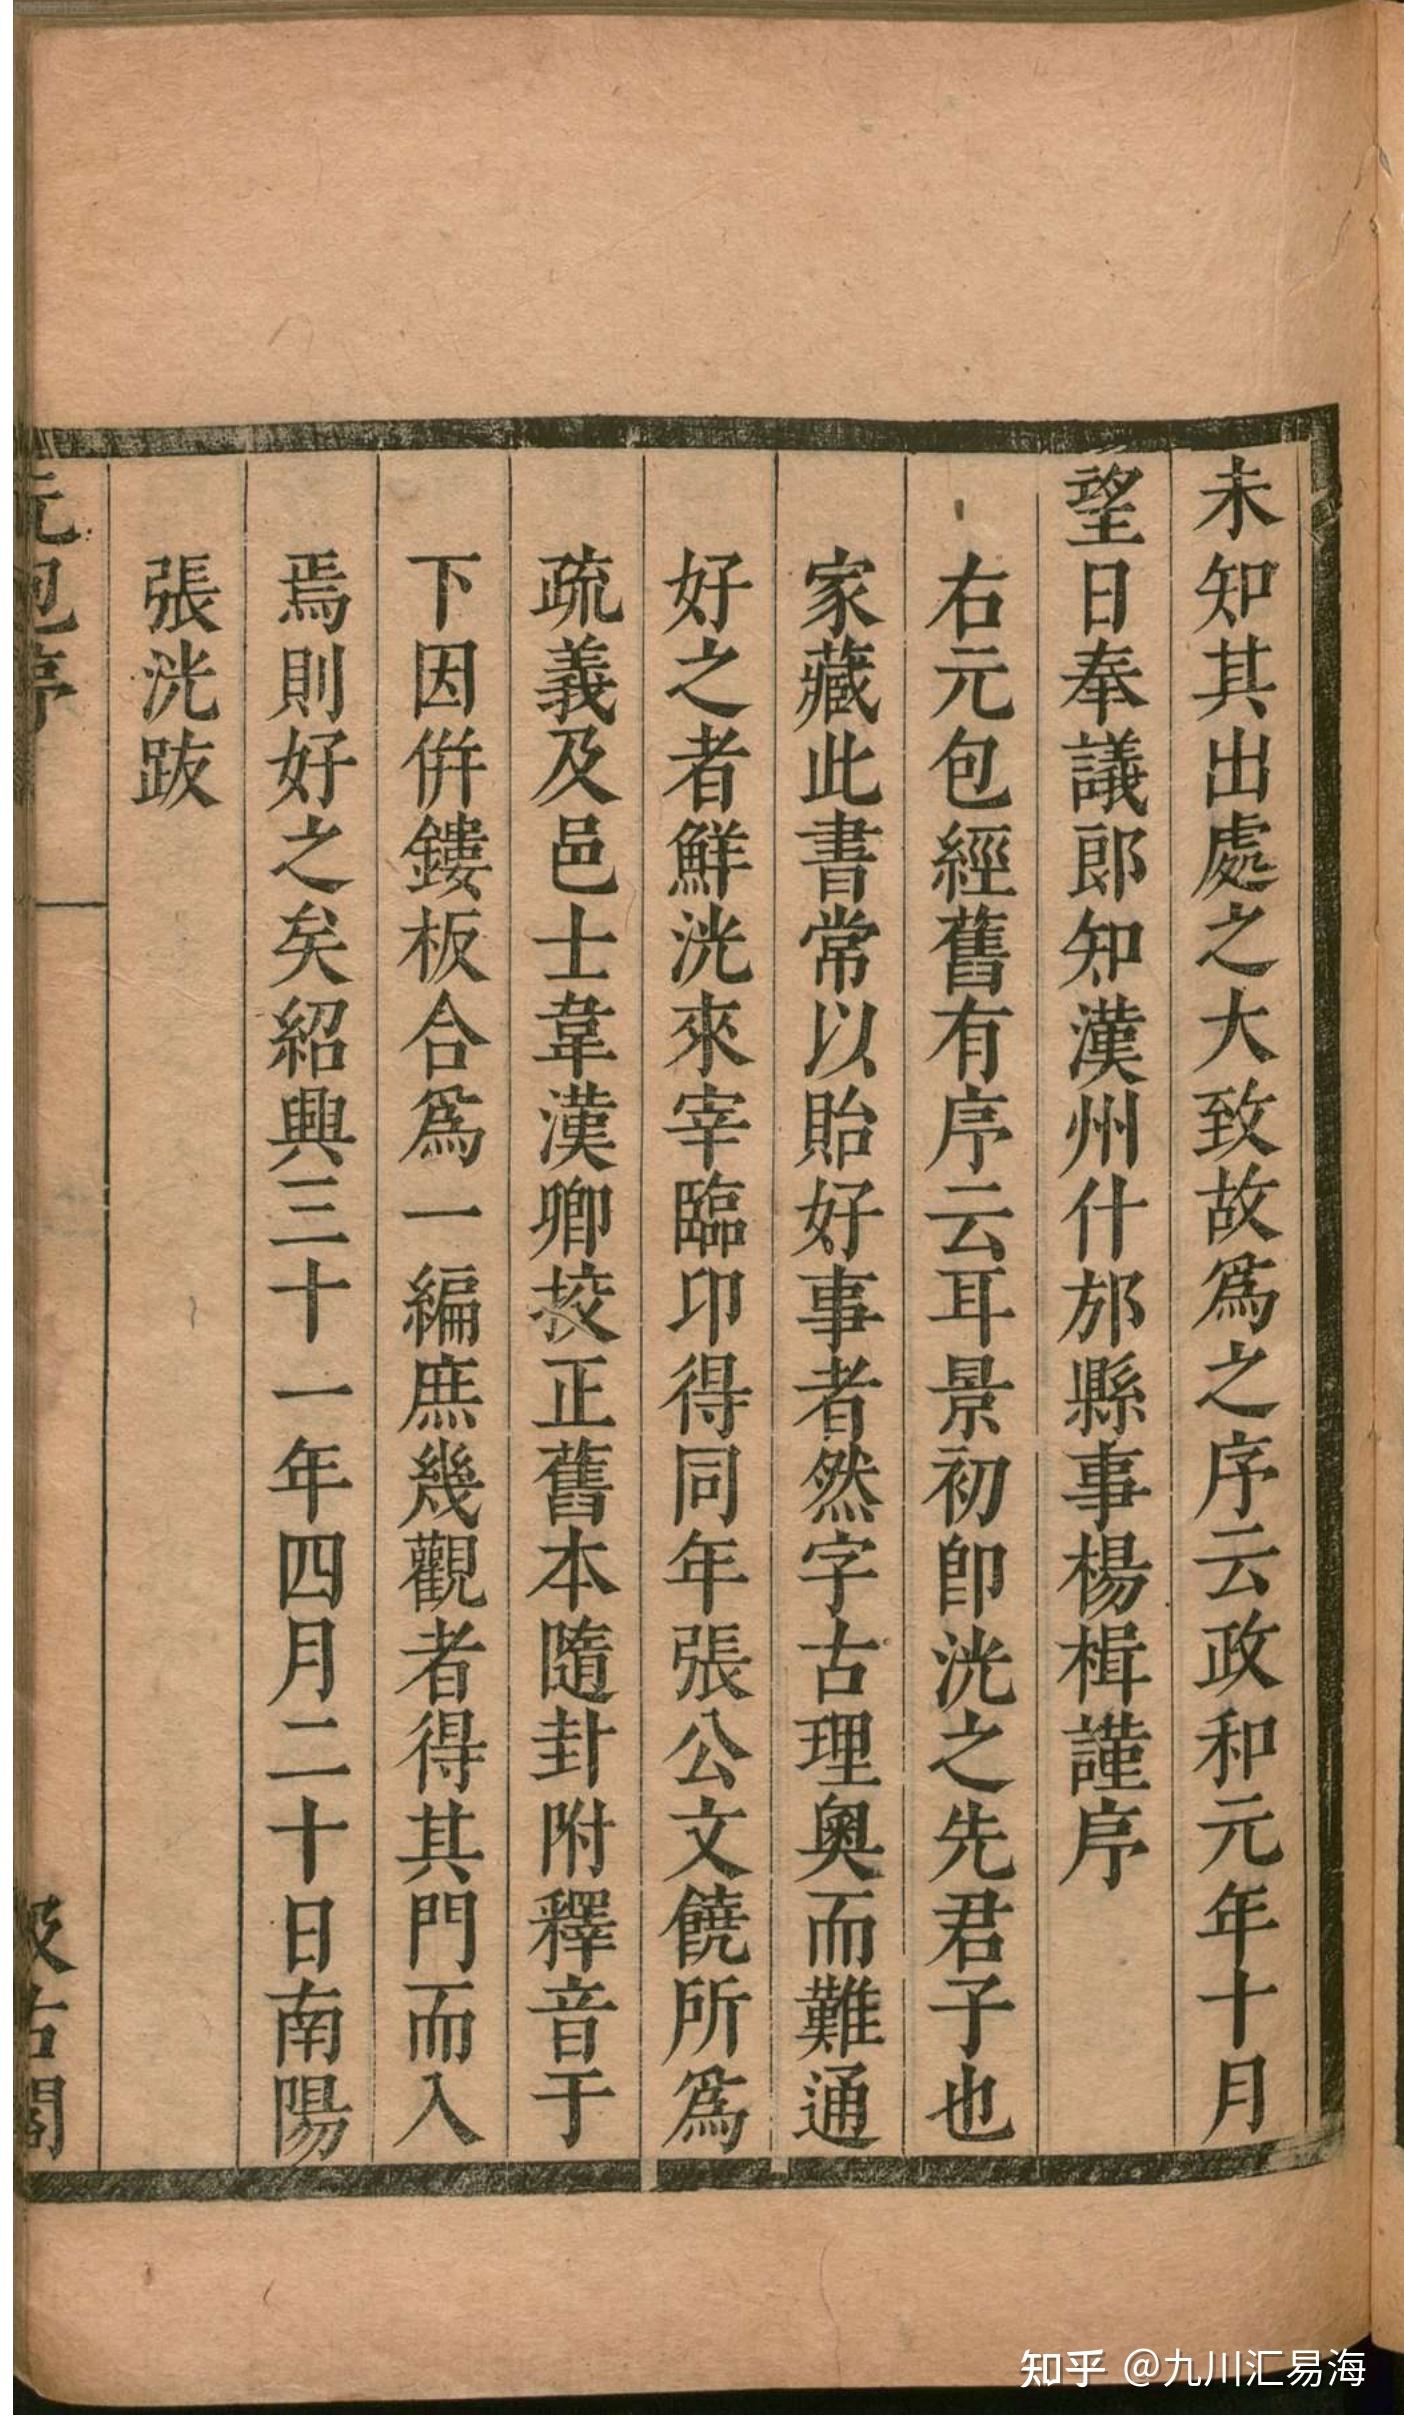 未知其出處之大致故爲之序云政和元年十月
望日奉議郎知漢州什邡縣事楊楫謹序
右元包經舊有序云耳景初卽洸之先君子也
家藏此書常以貽好事者然字古理奧而難通
好之者鮮洸來宰臨卭得同年張公文饒所爲
疏義及邑士韋漢卿挍正舊本隨封附釋音于
下因倂鏤板合爲一編庶幾觀者得其門而入
焉則好之矣紹興三十一年四月二十日南陽
張洸跋
元包序
汲古閣
知乎 @九川汇易海